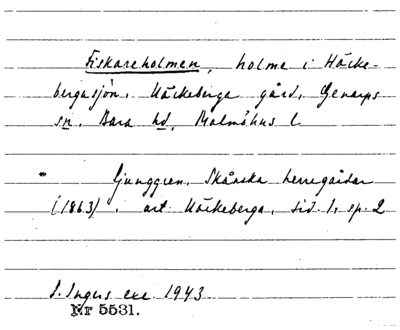 Fiskareholmen, holme i Häcke-
bergasjön. Häckeberga gård, Genarps
sn. Bara hd, Malmöhus l
Ljunggren. Skånska herregårdar
(1863), art. Häckeberga, sid. 1, sp. 2
S. Ingers exc 1943
Nr 5531.